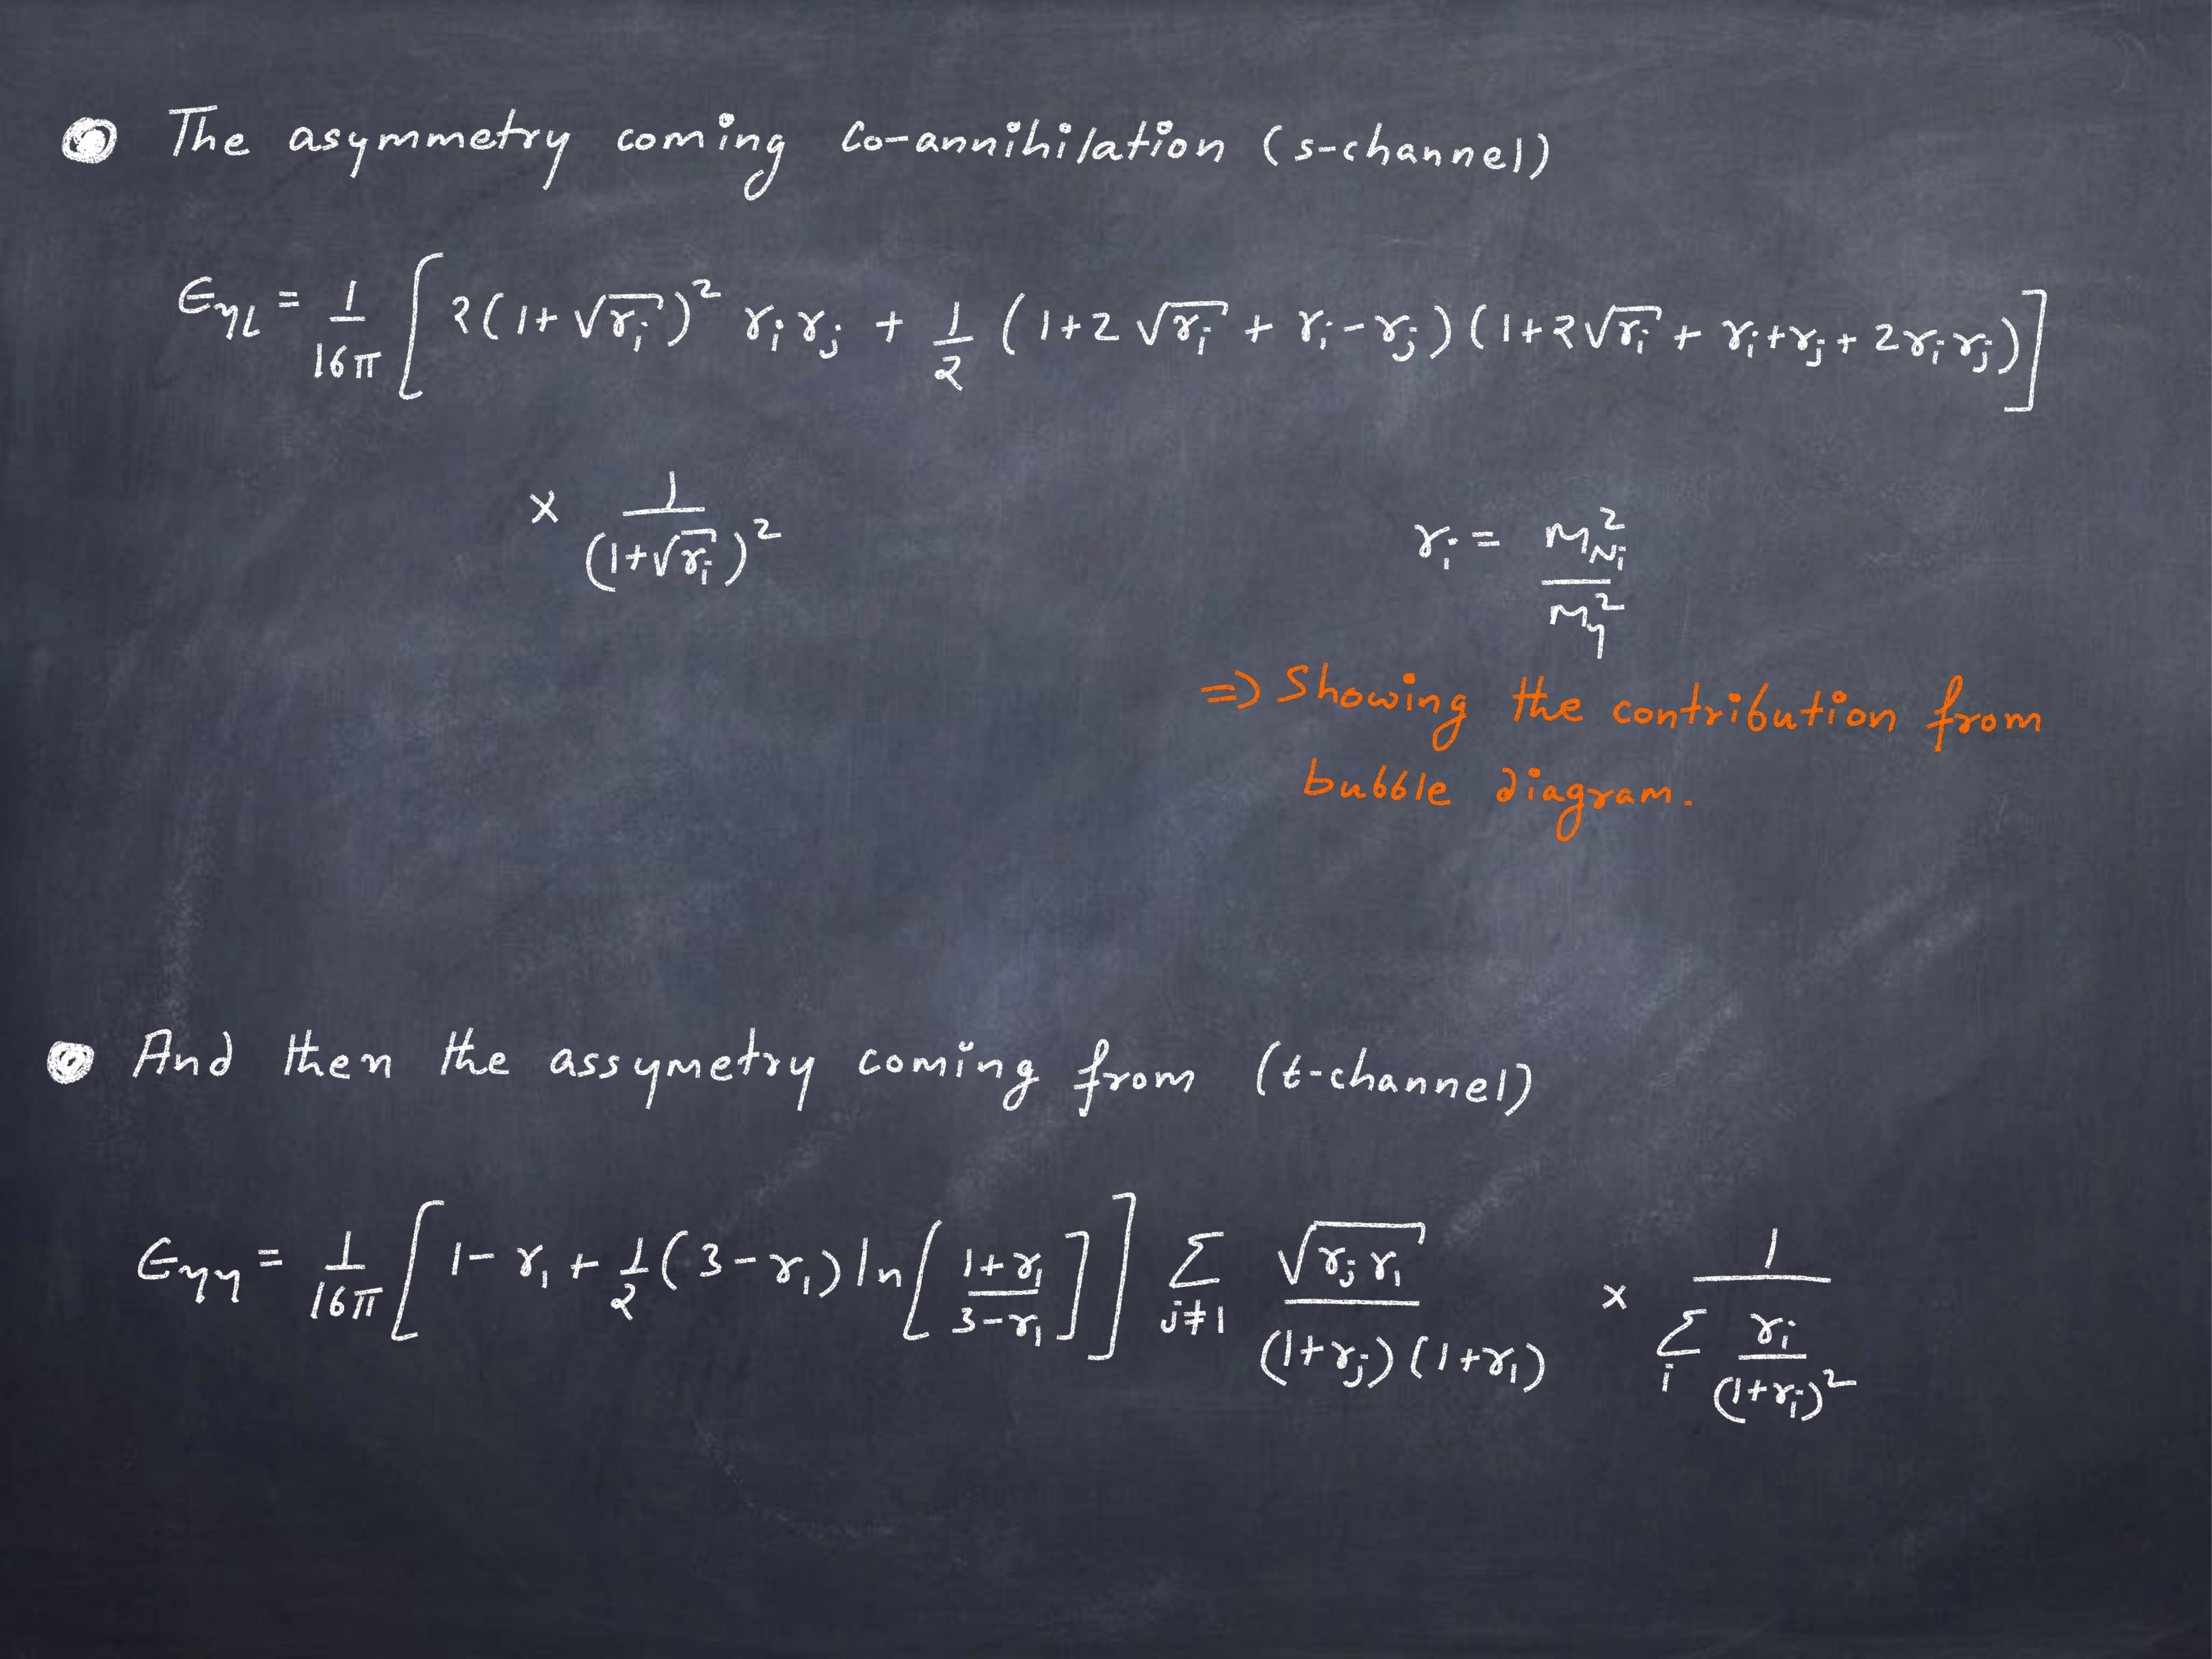 The asymmetry coming Co-annihilation (s-channel)
ϵ_{ηL} = \frac{1}{16π} [ 2(1+√r_i)^2 r_i r_j + \frac{1}{2} (1+2√r_i + r_i - r_j)(1+2√r_i + r_i + r_j + 2r_i r_j) ]
× \frac{1}{(1+√r_i)^2}
r_i = \frac{m_{N_i}^2}{m_η^2}
=> Showing the contribution from
bubble diagram.
And then the assymetry coming from (t-channel)
ϵ_{ηη} = \frac{1}{16π} [ 1 - r_1 + \frac{1}{2}(3-r_1) ln [ \frac{1+r_1}{3-r_1} ] ] Σ_{j≠1} \frac{√{r_j r_1}}{(1+r_j)(1+r_1)} × \frac{1}{Σ_i \frac{r_i}{(1+r_i)^2}}